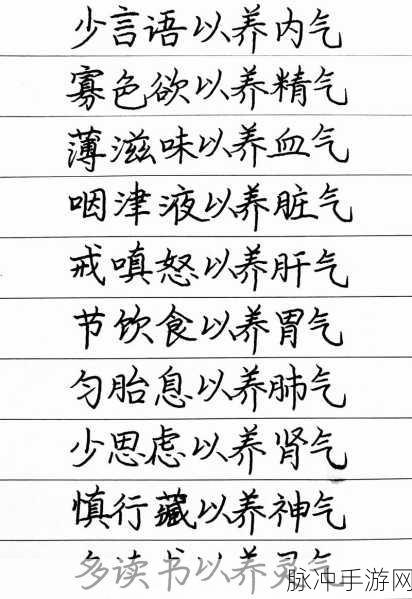 少言语以养内气
寡色欲以养精气
薄滋味以养血气
咽津液以养脏气
戒嗔怒以养肝气
节饮食以养胃气
匀胎息以养肺气
少思虑以养肾气
慎行藏以养神气
多读书以养灵气
脉冲手游网